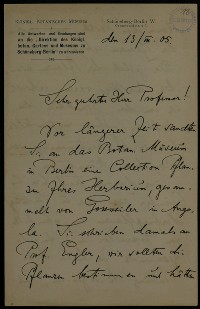 Schöneberg-Berlin W.
Alle Antworten und Sendungen sind
an die „Direktion des Königl.
botan. Gartens und Museums zu
Schöneberg-Berlin“
den 13/III. 05.
Sehr geehrter Herr Professor!
Vor längerer Zeit sandten
Sie an das Botan. Museum
in Berlin eine Collection Pflan-
zen Ihres Herbariums, gesam-
melt von Gossweiler in Ango-
la. Sie schrieben damals an
Prof. Engler, wir sollten die
Pflanzen bestimmen und hätten